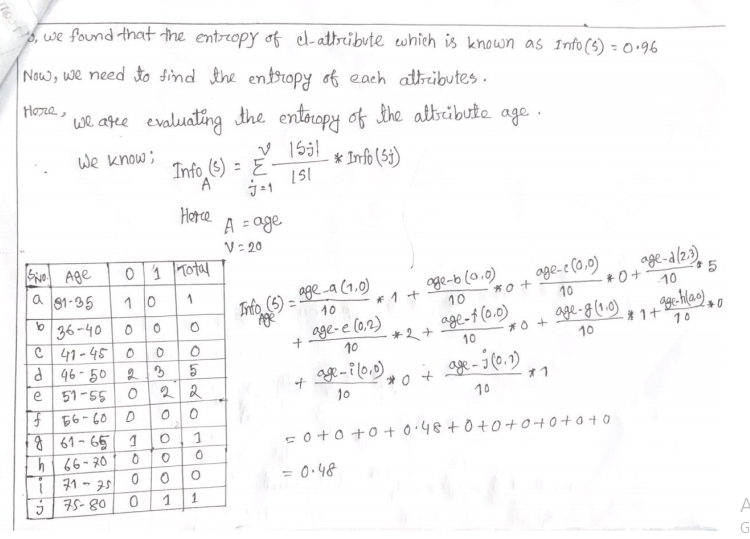 So, we found that the entropy of cl-attribute which is known as Info(S) = 0.96
Now, we need to find the entropy of each attributes.
Here, we are evaluating the entropy of the attribute age.
∴ We know; Info_A(S) = Σ_{j=1}^{V} |Sj| / |S| * Info(Sj)
Here A = age
V = 20
S/No. Age 0 1 Total
a 31-35 1 0 1
b 36-40 0 0 0
c 41-45 0 0 0
d 46-50 2 3 5
e 51-55 0 2 2
f 56-60 0 0 0
g 61-65 1 0 1
h 66-70 0 0 0
i 71-75 0 0 0
j 75-80 0 1 1
Info_Age(S) = age-a(1,0)/10 * 1 + age-b(0,0)/10 * 0 + age-c(0,0)/10 * 0 + age-d(2,3)/10 * 5
+ age-e(0,2)/10 * 2 + age-f(0,0)/10 * 0 + age-g(1,0)/10 * 1 + age-h(0,0)/10 * 0
+ age-i(0,0)/10 * 0 + age-j(0,1)/10 * 1
= 0+0+0+0.48+0+0+0+0+0+0
= 0.48
A
G